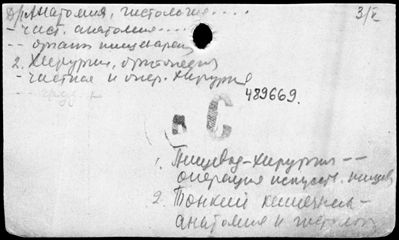 Анатомия, гистология.... 3/X
- част. анатомия....
-- органы пищеварен
2. Хирургия, ортопедия
- частная и опер. хирургия
489669.
С
1. Пищевод-хирургия --
операция искусств. пищев
2. Тонкий кишечник -
анатомия и гистолог